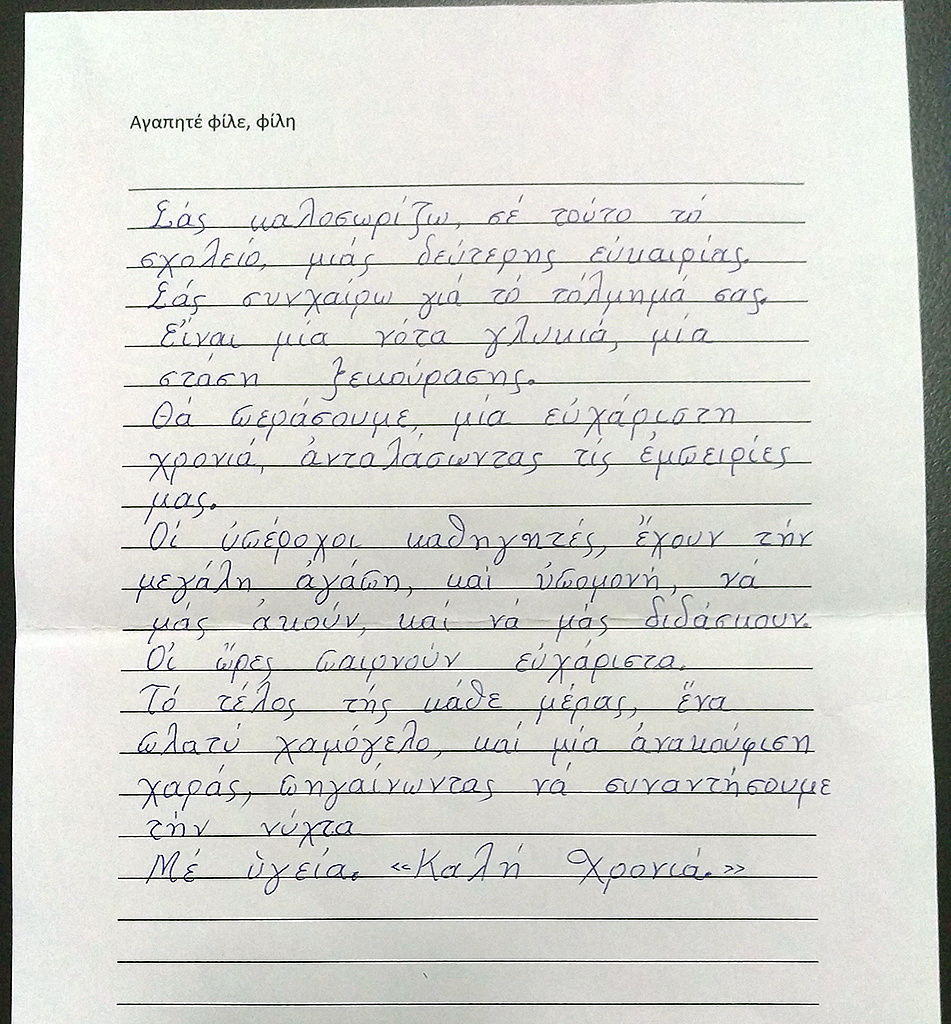 Αγαπητέ φίλε, φίλη
Σάς καλοσωρίζω, σέ τούτο τό
σχολείό, μιάς δεύτερης εύκαιρίας.
Σάς συνχαίρω γιά τό τόλμημά σας.
Είναι μία νότα γλυκιά, μία
στάση ξεκούρασης.
Θά περάσουμε, μία εύχάριστη
χρονιά, άνταλάσωντας τίς έμπειρίες
μας.
Οί ύπέροχοι καθηγητές, ἔχουν τήν
μεγάλη άγάπη, καί ύπομονή, νά
μάς άκούν, καί νά μάς διδάσκουν.
Οί ὥρες παιρνούν εύχάριστα.
Τό τέλος τής κάθε μέρας, ἕνα
πλατύ χαμόγελο, καί μία άνακούφιση
χαράς, πηγαίνωντας νά συναντήσουμε
τήν νύχτα
Μέ ὑγεία. «Καλή Χρονιά.»